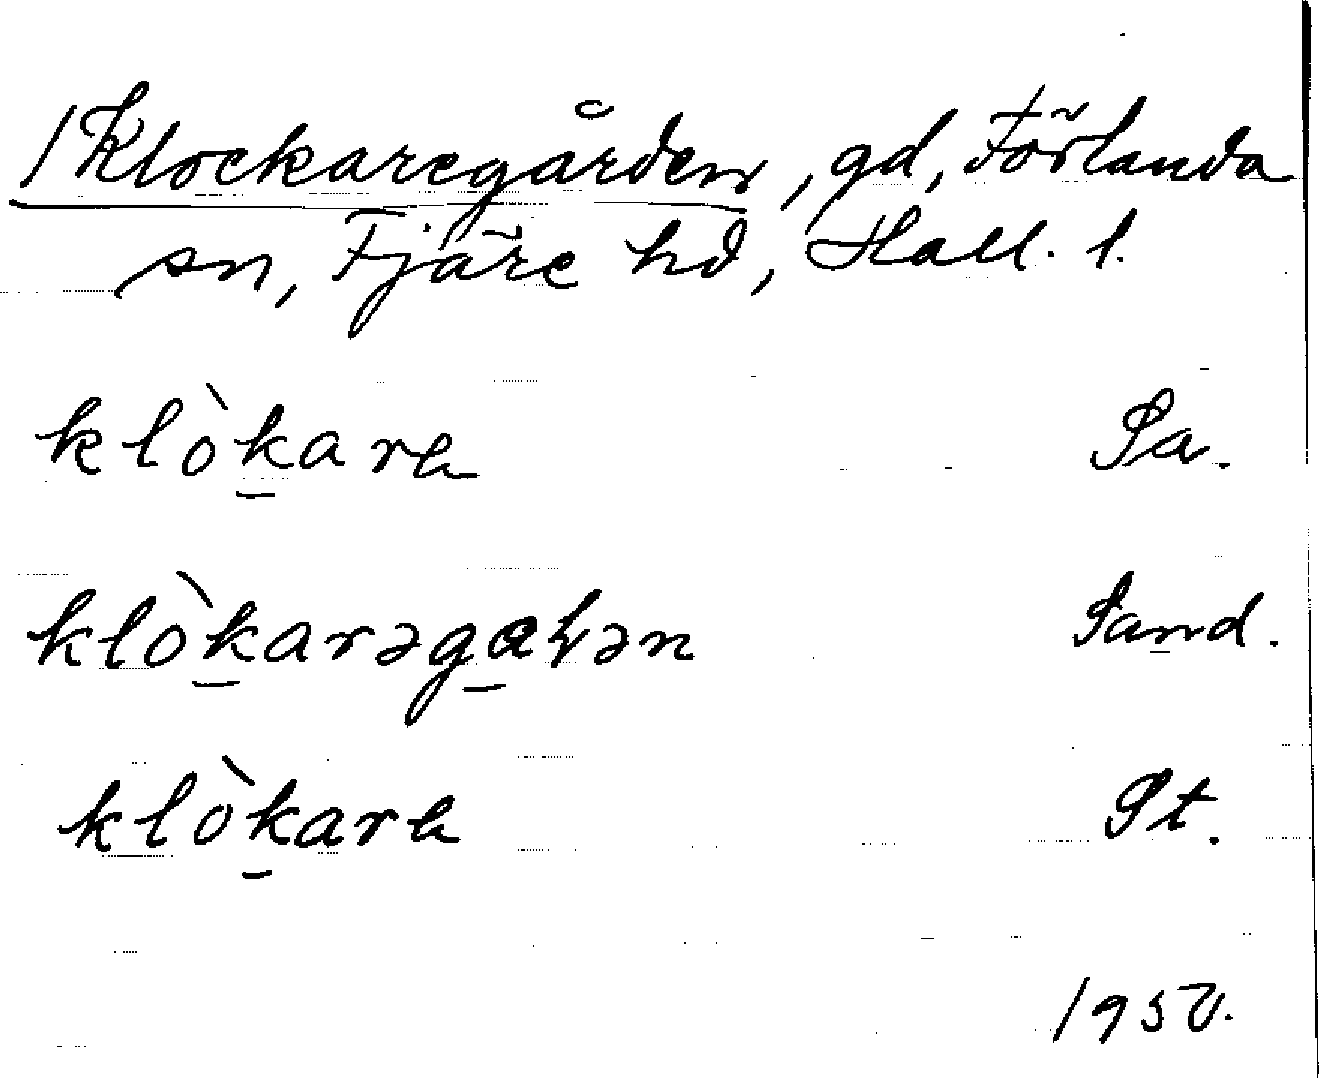 /Klockaregården, gd, Förlanda
sn, Fjäre hd, Hall. l.
klòkara Sa.
klòkarəga Sand.
klòkara St.
1950.